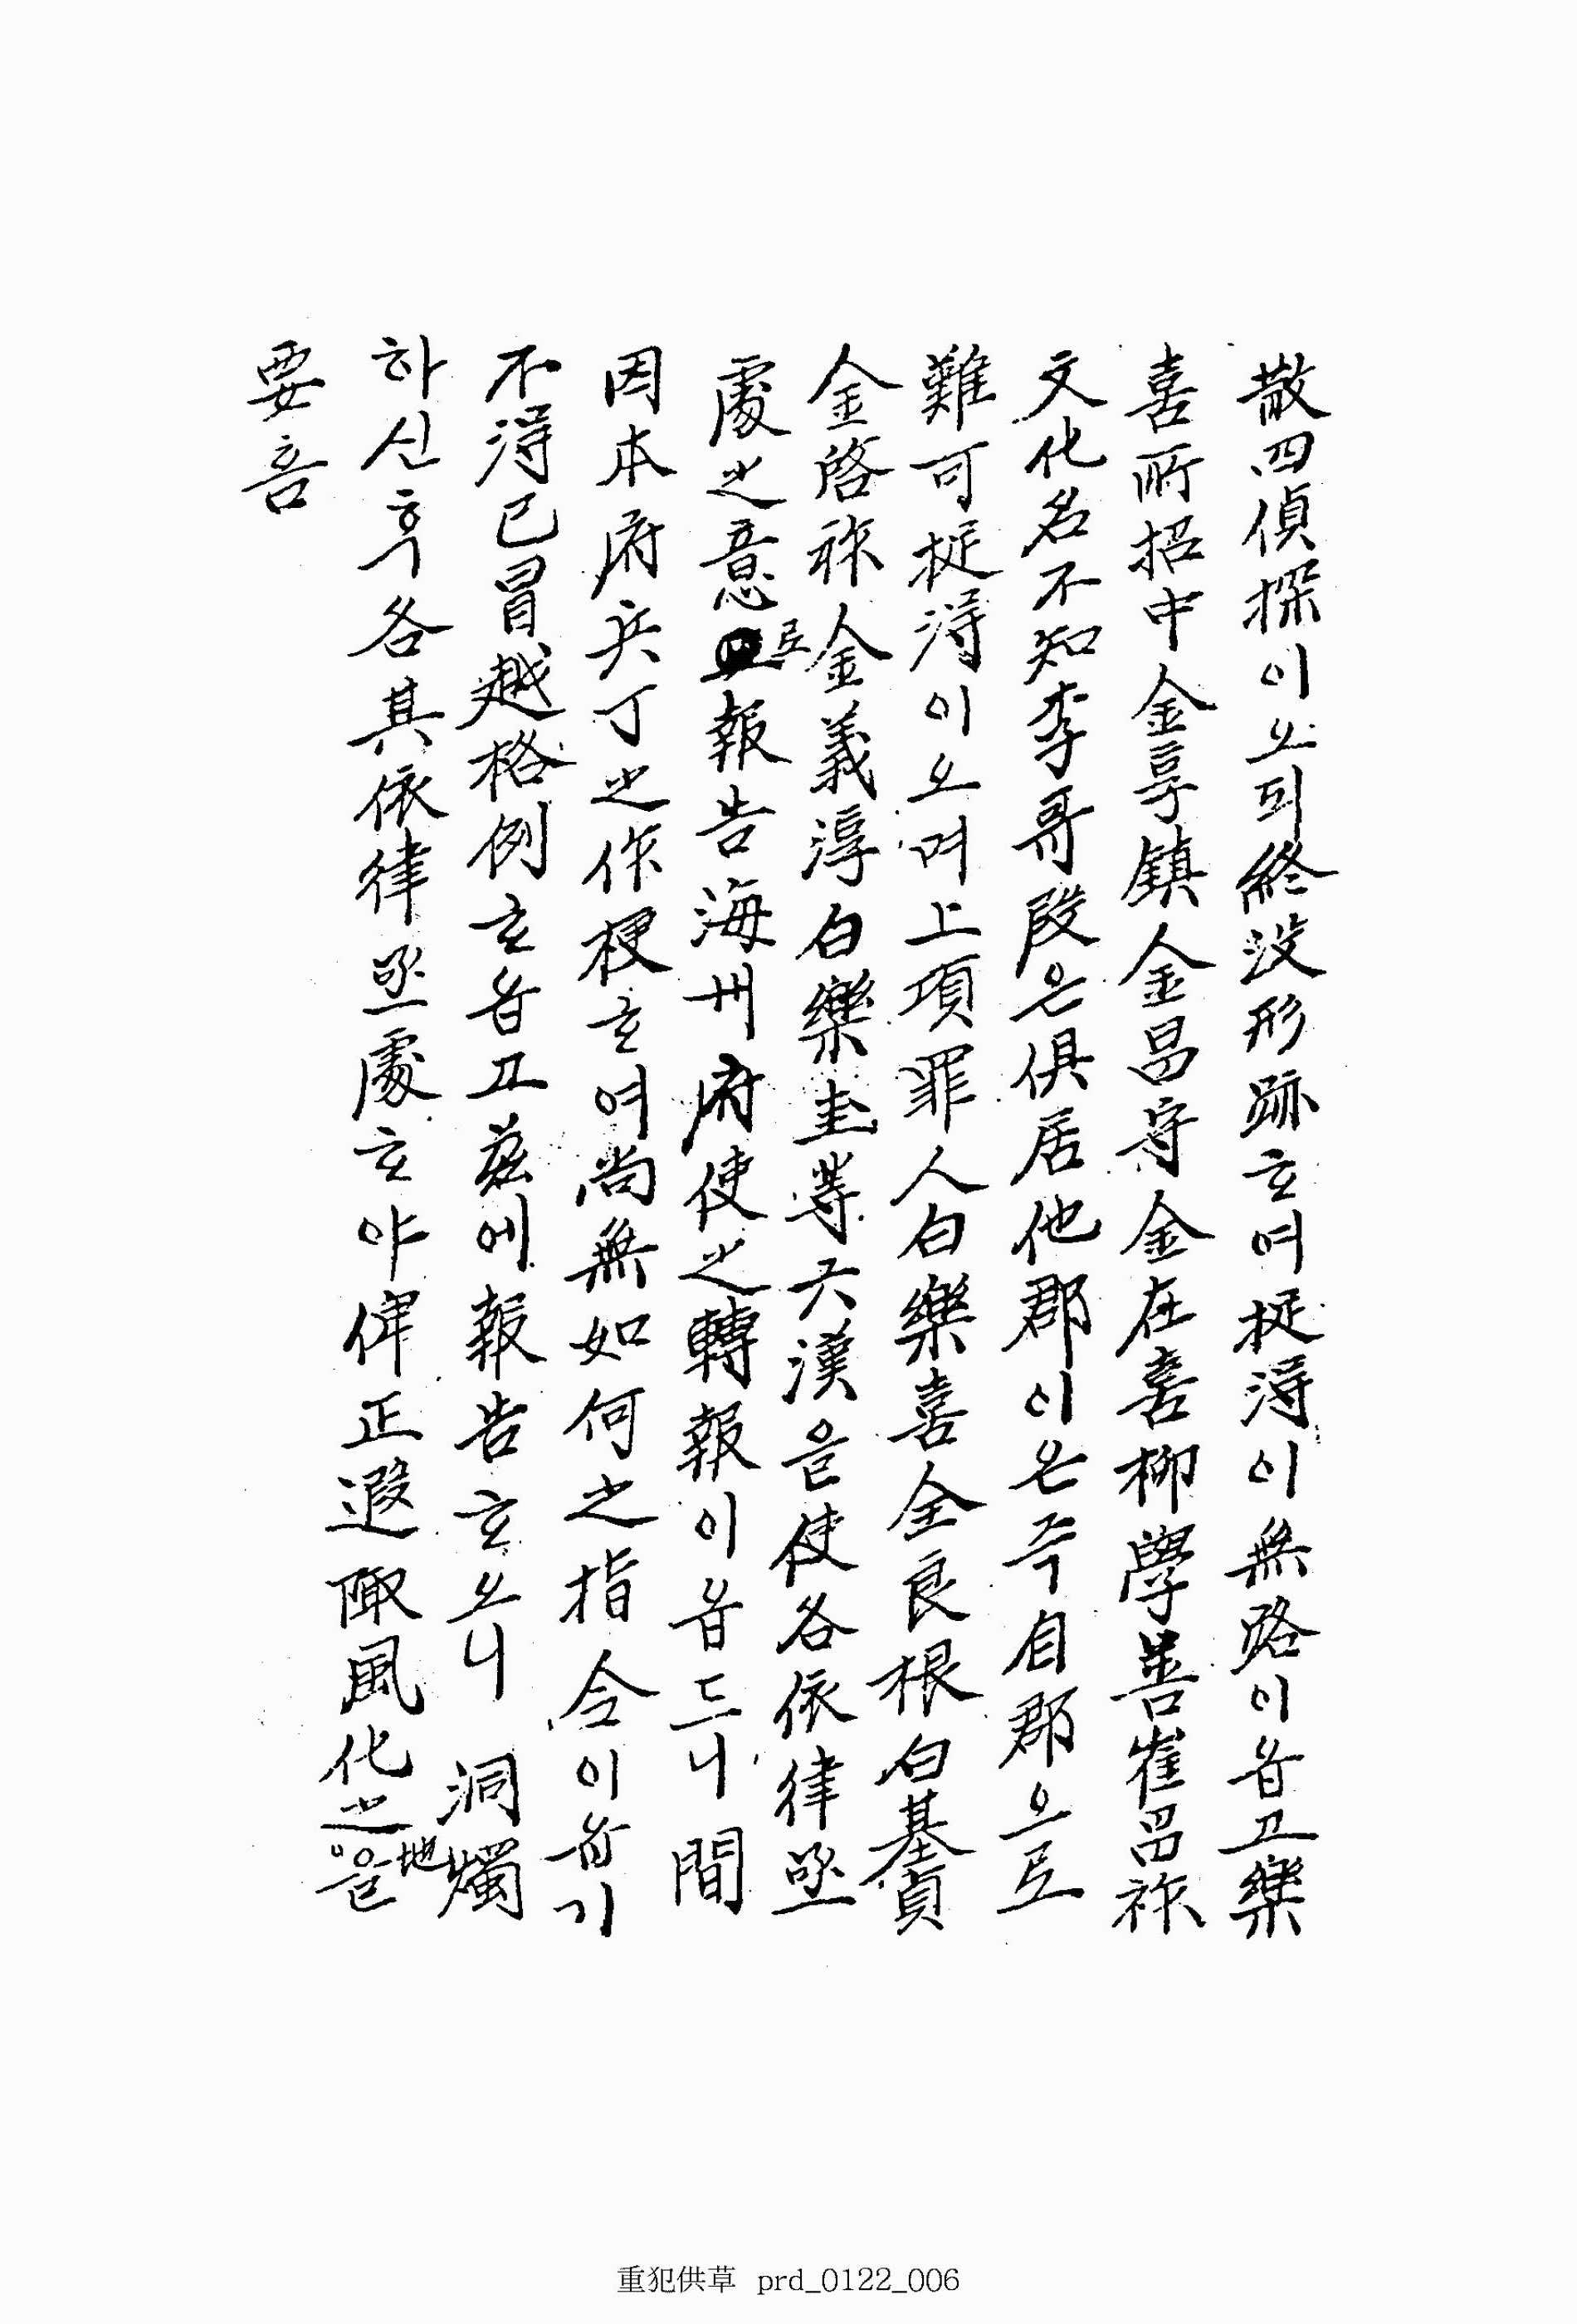 散四偵探이오되終沒形跡ᄒᆞ여捉得이無路이옵고樂
喜所招中金亨鎭金昌守金在喜柳學善崔昌祚
文化名不知李哥段은俱居他郡이온즉自郡으로
難可捉得이오며上項罪人白樂喜全良根白基貞
金啓祚金義淳白樂圭等六漢은使各依律亟
處之意로報告海州府使之轉報이옵드니間
因本府兵丁之作梗ᄒᆞ여尙無如何之指令이옵기
不得已冒越格例ᄒᆞ옵고玆에報告ᄒᆞ오니 洞燭
하신후各其依律亟處ᄒᆞ야俾正遐陬風化之地을
要홈
重犯供草 prd_0122_006